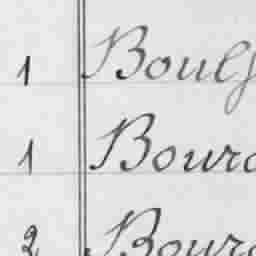 1 Boulf
1 Bourc
2 Bourc